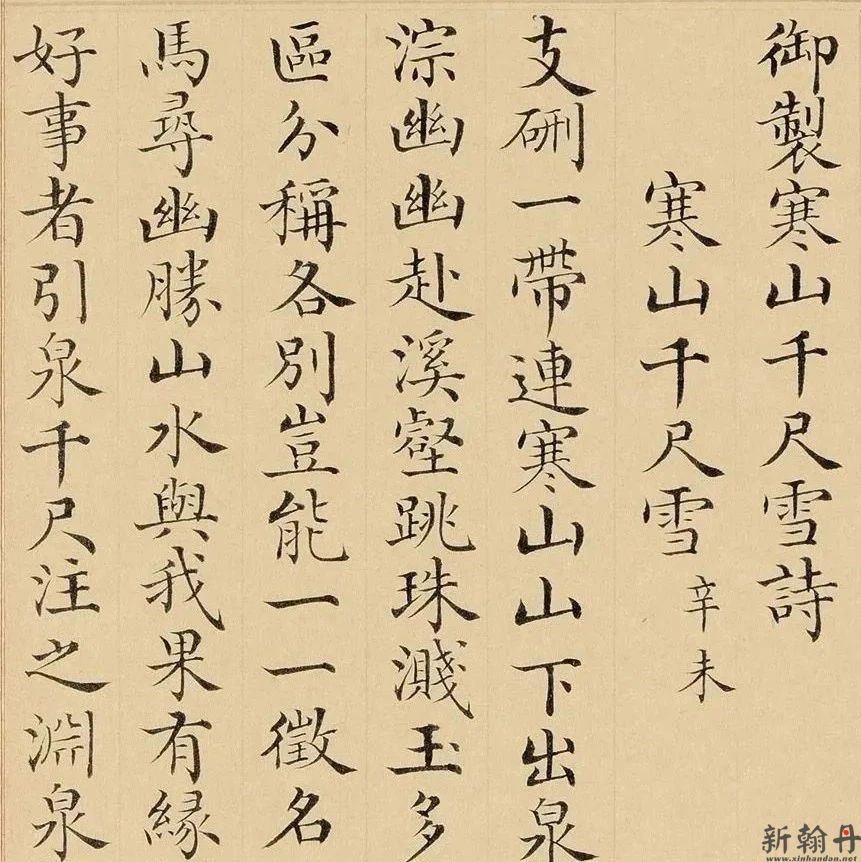 御製寒山千尺雪詩
寒山千尺雪 辛未
支硎一帶連寒山山下出泉
淙幽幽赴溪壑跳珠濺玉多
區分稱各別豈能一一徵名
馬尋幽勝山水與我果有緣
好事者引泉千尺注之淵泉
新翰丹
www.xinhandan.net